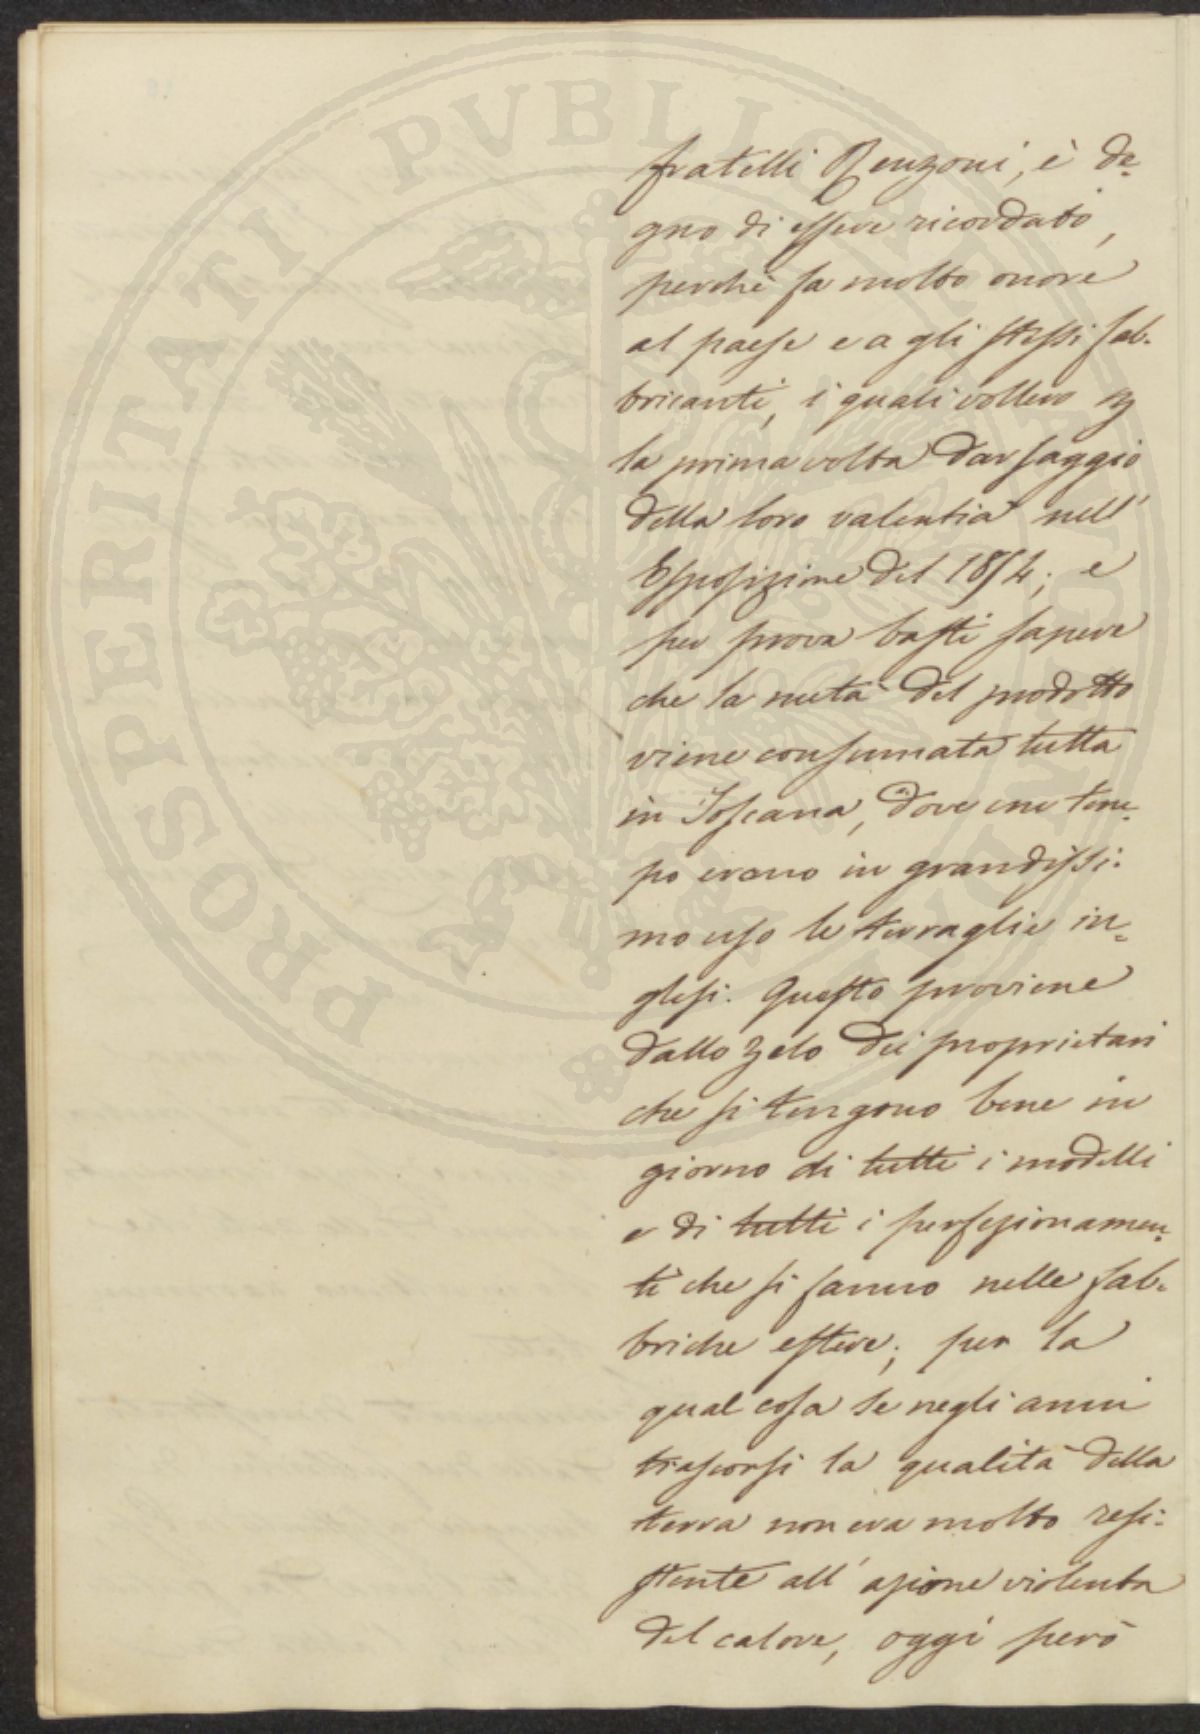 PROSPERITATI PVBLICAE AVGENDAE
fratelli Renzoni, è de-
gno di essere ricordato,
perchè fa molto onore
al paese e a gli stessi fab-
bricanti, i quali vollero
la prima volta dar saggio
della loro valentia nell'
Esposizione del 1854; e
per prova basti sapere
che la metà del prodotto
viene consumata tutta
in Toscana, dove un tem-
po erano in grandissi-
mo uso le terraglie in-
glesi. Questo proviene
dallo zelo dei proprietari
che si tengono bene in
giorno di tutti i modelli
e di tutti i perfezionamen-
ti che si fanno nelle fab-
briche estere; per la
qual cosa se negli anni
trascorsi la qualità della
terra non era molto resi-
stente all'azione violenta
del calore, oggi però